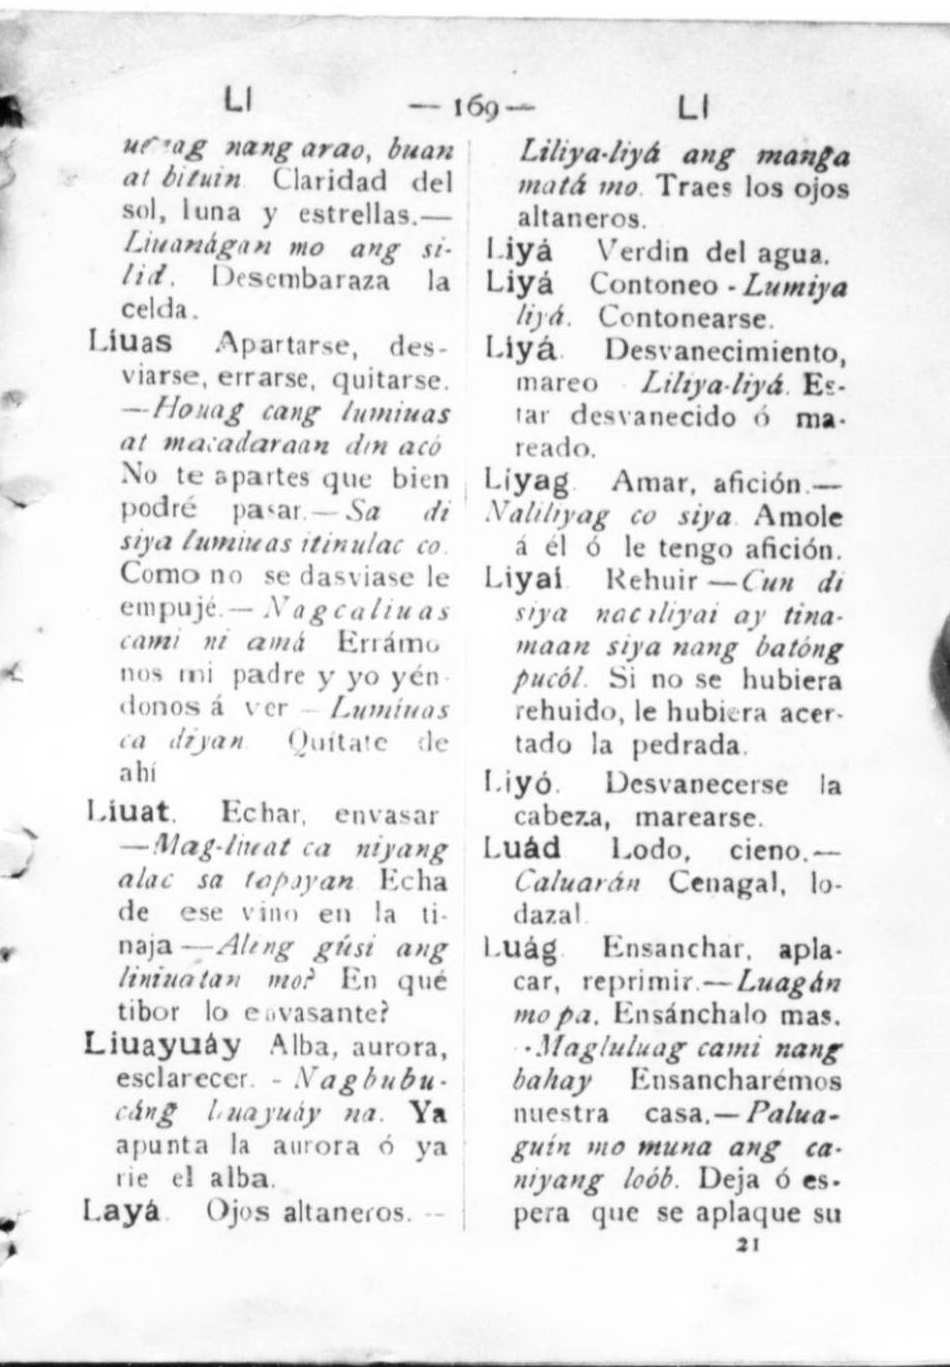 LI — 169 — LI
nang arao, buan
at bituin. Claridad del
sol, luna y estrellas.—
Liuanágan mo ang si-
lid. Desembaraza la
celda.
Líuas Apartarse, des-
viarse, errarse, quitarse.
—Houag cang lumiuas
at macadaraan din acó
No te apartes que bien
podré pasar.—Sa di
siya lumiuas itinulac co.
Como no se dasviase le
empujé.—Nagcaliuas
cami ni amá Errámo
nos mi padre y yo yén-
donos á ver—Lumíuas
ca diyan. Quítate de
ahí
Liuat. Echar, envasar
—Mag-liuat ca niyang
alac sa tapayan Echa
de ese vino en la ti-
naja—Aling gúsi ang
liniuatan mo? En qué
tibor lo envasante?
Liuayuáy Alba, aurora,
esclarecer. - Nagbubu-
cáng̃ liuayuáy na. Ya
apunta la aurora ó ya
rie el alba.
Layá. Ojos altaneros. —
Liliya-liyá ang mang̃a
matá mo. Traes los ojos
altaneros.
Liyá Verdin del agua.
Liyá Contoneo - Lumiya
liyá. Contonearse.
Liyá. Desvanecimiento,
mareo - Liliya-liyá. Es-
tar desvanecido ó ma-
reado.
Líyag. Amar, afición.—
Naliliyag co siya. Amole
á él ó le tengo afición.
Liyai Rehuir—Cun di
siya naciliyai ay tina-
maan siya nang batóng
pucól. Si no se hubiera
rehuido, le hubiera acer-
tado la pedrada.
Liyó. Desvanecerse la
cabeza, marearse.
Luád Lodo, cieno.—
Caluarán Cenagal, lo-
dazal.
Luág. Ensanchar, apla-
car, reprimir.—Luagán
mo pa. Ensánchalo mas.
-Magluluag cami nang
bahay Ensancharémos
nuestra casa.—Palua-
guín mo muna ang ca-
niyang loób. Deja ó es-
pera que se aplaque su
21